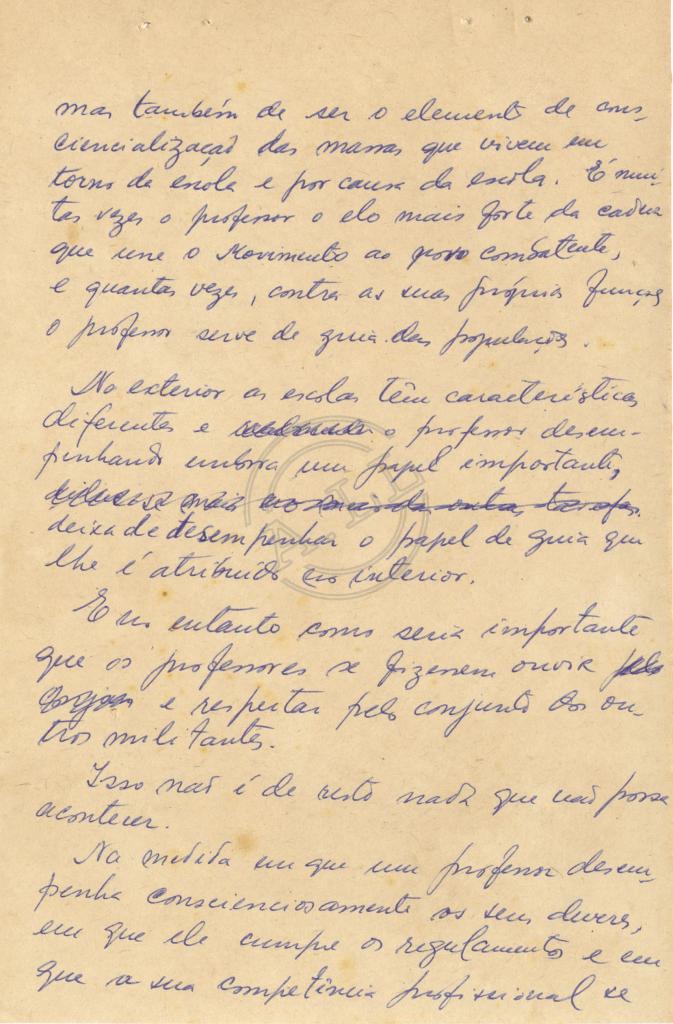 mas também de ser o elemento de cons-
ciencialização das massas que vivem em
torno da escola e por causa da escola. É mui-
tas vezes o professor o elo mais forte da cadeia
que une o Movimento ao povo combatente,
e quantas vezes, contra as suas próprias funções
o professor serve de guia das populações.
No exterior as escolas têm características
diferentes e o professor desem-
penhando embora um papel importante,
deixa de desempenhar o papel de guia que
lhe é atribuído no interior.
E no entanto como seria importante
que os professores se fizessem ouvir pelo
e respeitar pelo conjunto dos ou-
tros militantes.
Isso não é de resto nada que não possa
acontecer.
Na medida em que um professor desem-
penha conscienciosamente os seus deveres,
em que ele cumpre os regulamentos e em
que a sua competência profissional se